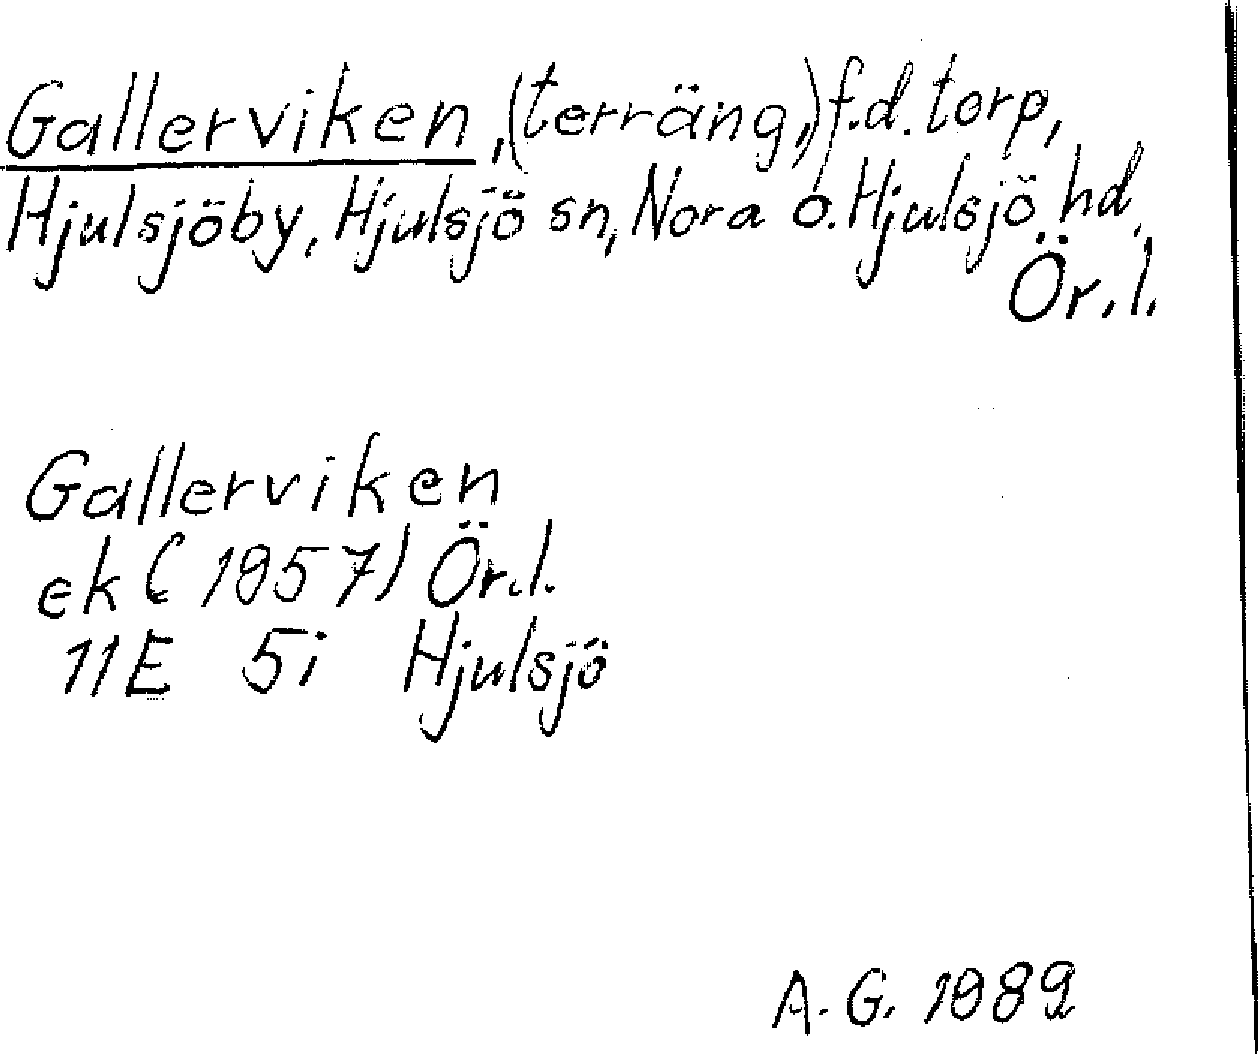 Gallerviken, (terräng,) f.d. torp,
Hjulsjöby, Hjulsjö sn, Nora o. Hjulsjö hd,
Ör. l.
Gallerviken
ek (1957) Ör.l.
11E 5i Hjulsjö
A. G. 1989